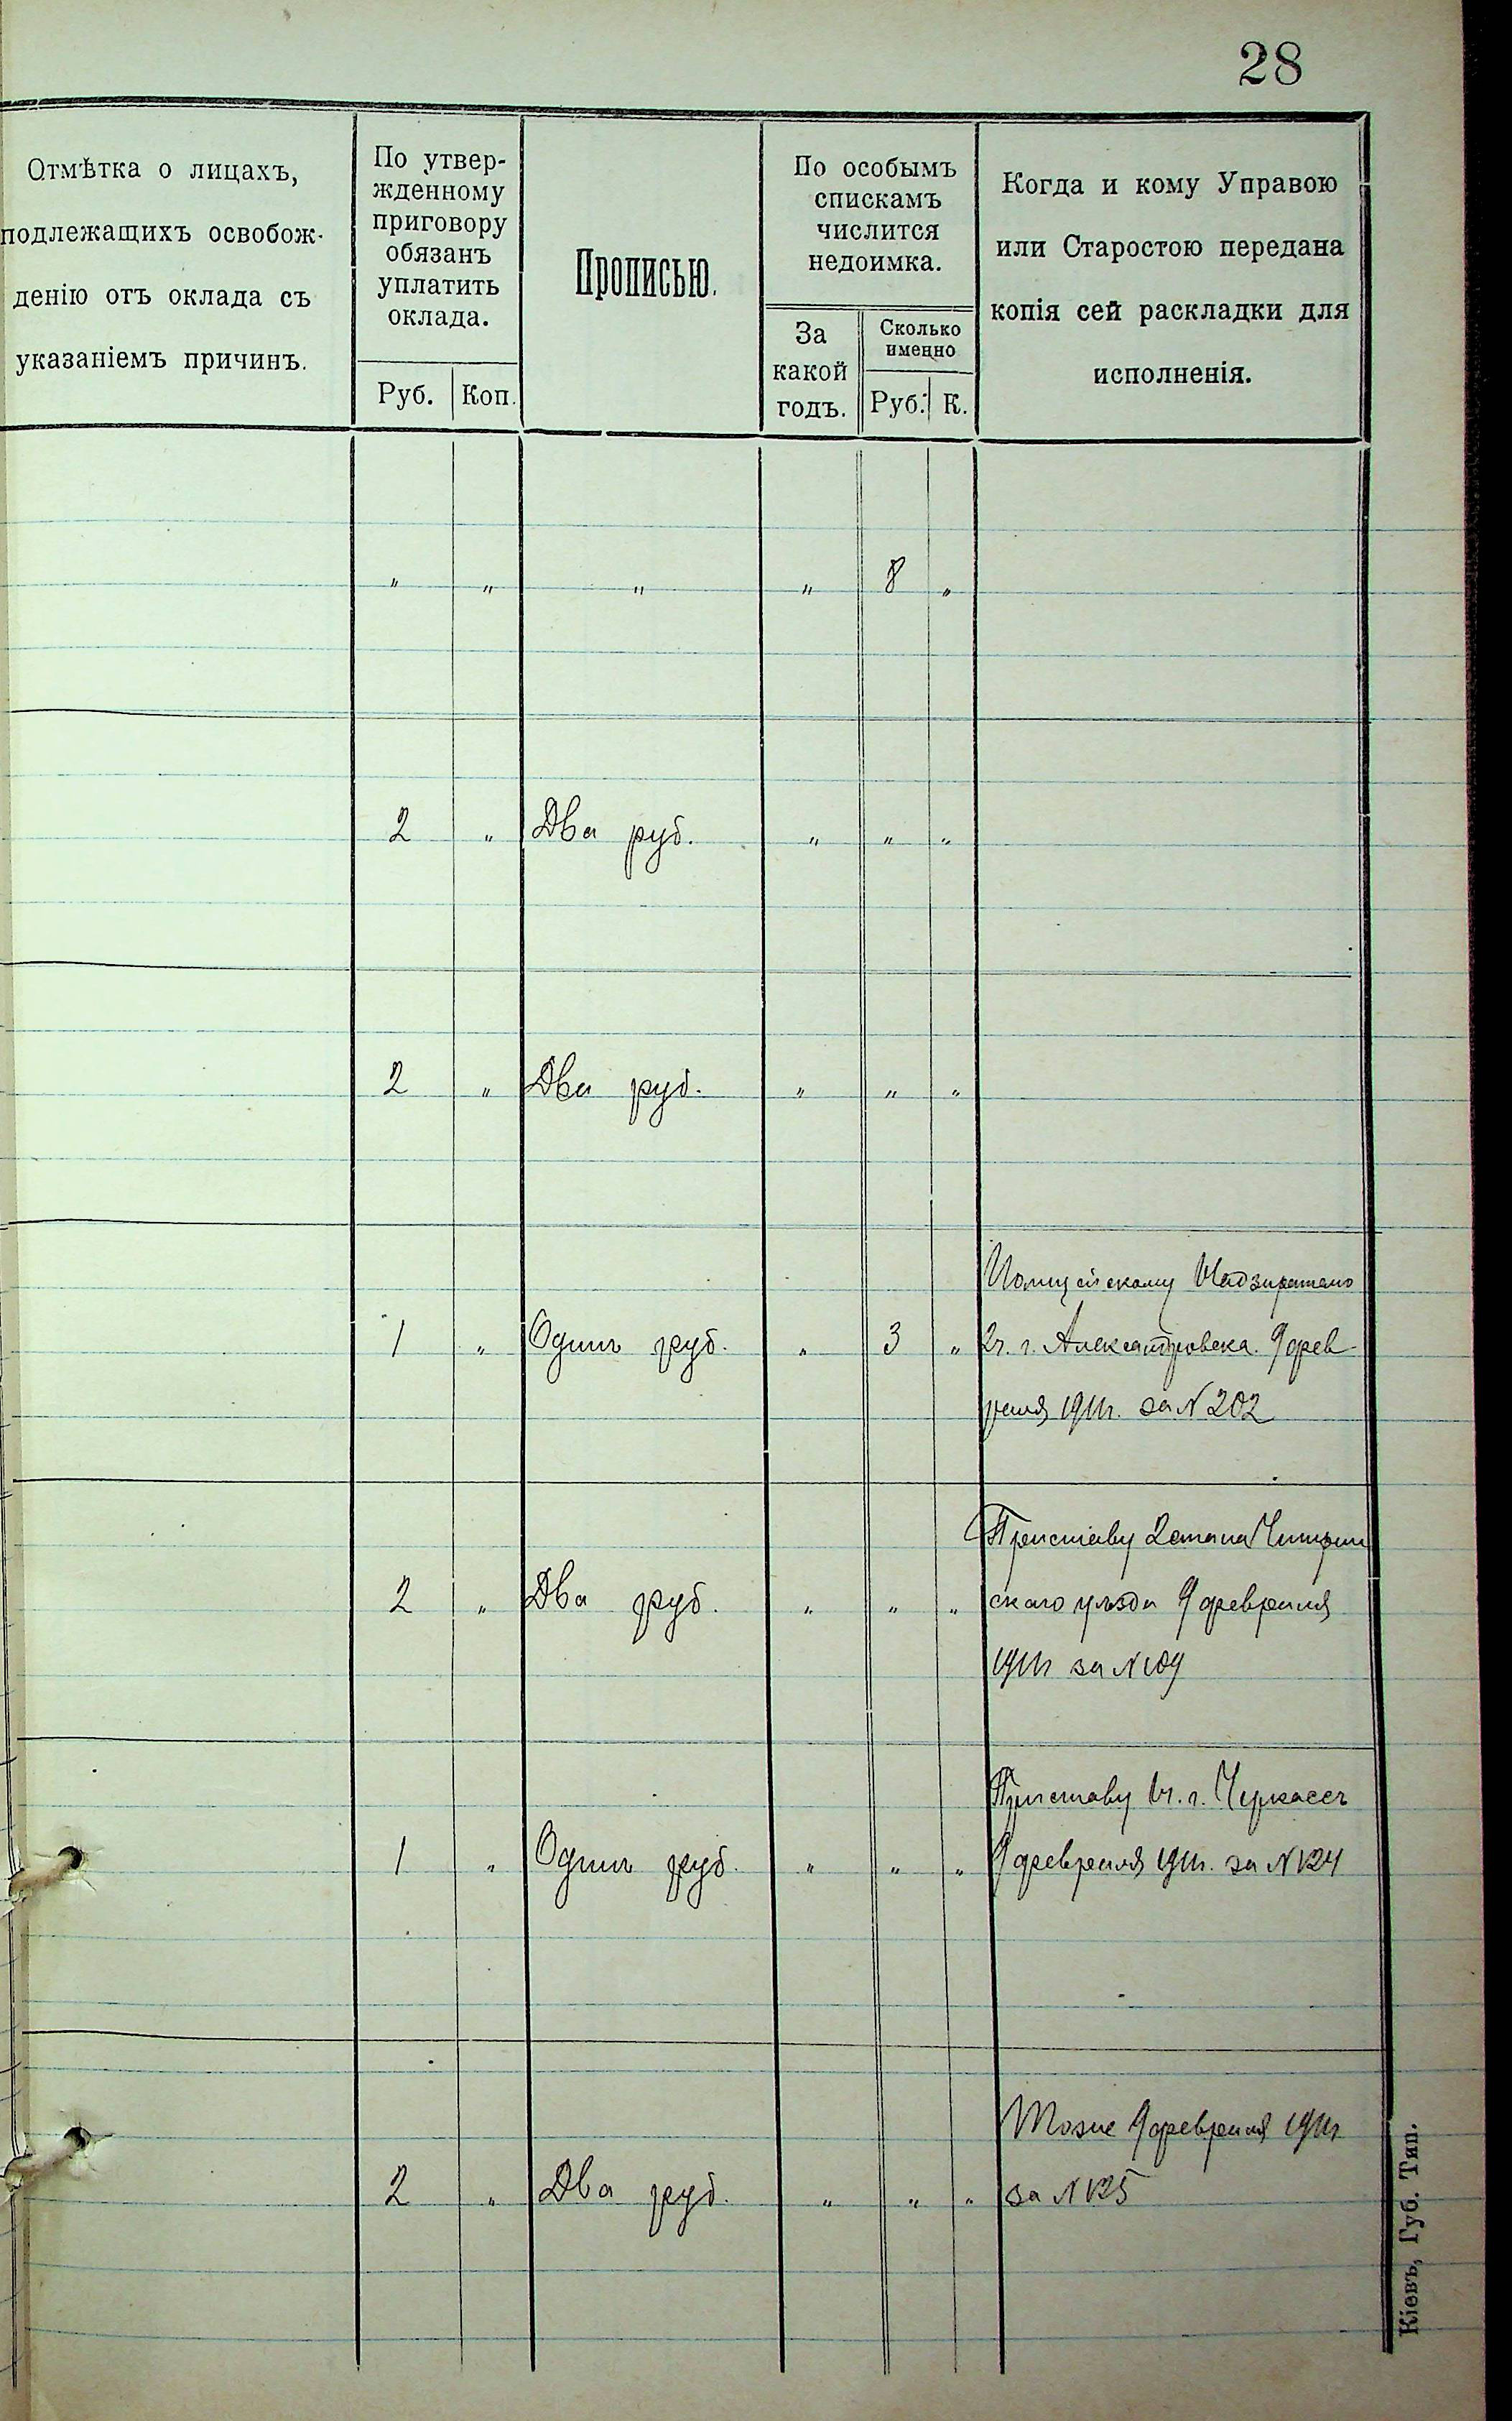 28
Отмѣтка о лицахъ,
подлежащихъ освобож-
денію отъ оклада съ
указаніемъ причинъ.
По утвер-
жденному
приговору
обязанъ
уплатить
оклада.
Руб. Коп.
Прописью.
По особымъ
спискамъ
числится
недоимка.
За
какой
годъ.
Сколько
именно
Руб. К.
Когда и кому Управою
или Старостою передана
копія сей раскладки для
исполненія.
" " " " 8 "
2 " Два руб. " " "
2 " Два руб. " " "
Полицейскому Надзирателю
1 " Одинъ руб. " 3 " 2 ч. г. Александровска. 9 фев-
раля 1911 г. за N 202
Приставу 2 стана Чигирин
2 " Два руб. " " " скаго уѣзда 9 февраля
1911 г за N 109
Приставу 1 ч. г. Черкассъ
1 " Одинъ руб. " " " 9 февраля 1911 г. за N 124
Тоже 9 февраля 1911 г
2 " Два руб. " " " за N 125
Кіевъ, Губ. Тип.